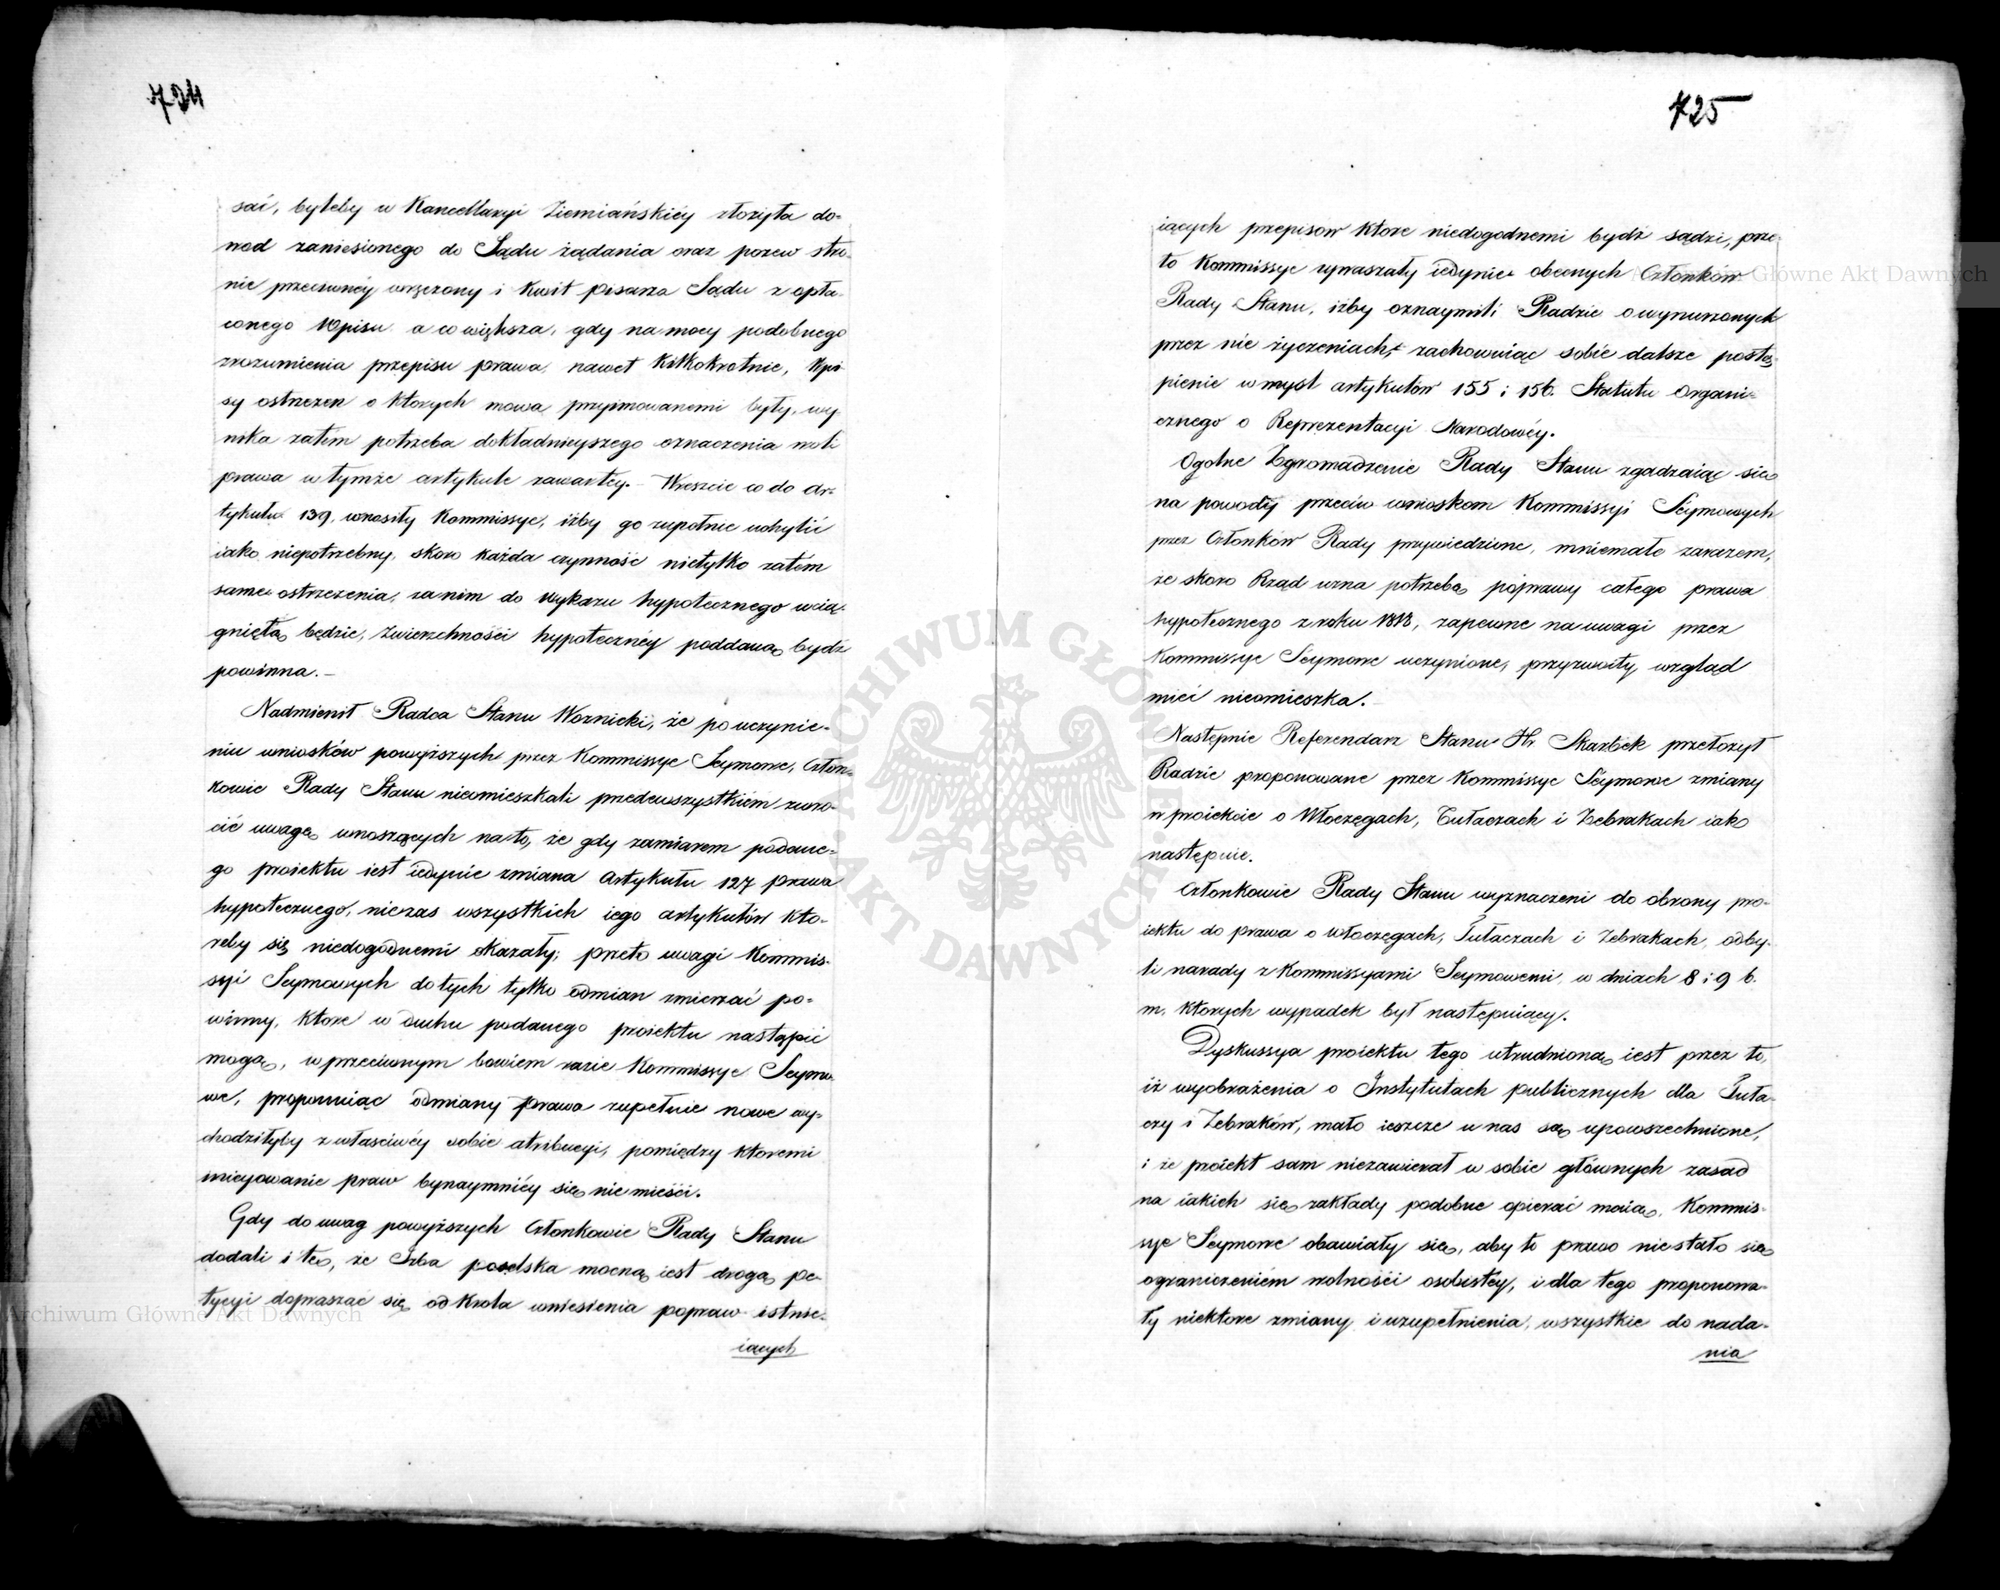 724
sać, byleby w Kancellaryi Ziemiańskiéy złożyła do-
wod zaniesionego do Sądu żądania oraz pozew stro-
nie przeciwnéy wręczony i kwit pisarza Sądu z opła-
conego Wpisu a co większa, gdy na mocy podobnego
zrozumienia przepisu prawa, nawet kilkokrotnie, Wpi-
sy ostrzeżen o ktorych mowa przyimowanemi były, wy-
nika zatém potrzeba dokładnieyszego oznaczenia woli
prawa w tymże artykule zawartéy. – Wreszcie co do Ar-
tykułu 139, wnosiły Kommissye, iżby go zupełnie uchylić
iako niepotrzebny, skoro każda czynność nietylko zatém
same ostrzeżenia, zanim do wykazu hypotecznego wcią-
gniętą będzie, Zwierzchności hypotecznéy poddaną bydź
powinna. –
Nadmienił Radca Stanu Woznicki, że po uczynie-
niu wniosków powyższych przez Kommissye Seymowe, Człon-
kowie Rady Stanu nieomieszkali przedewszystkiém zwro-
cić uwagę wnoszących na to, że gdy zamiarem podane-
go proiektu iest iedynie zmiana Artykułu 127 prawa
hypotecznego, niezas wszystkich iego artykułów kto-
reby się niedogodnemi okazały; przeto uwagi Kommis-
syi Seymowych do tych tylko odmian zmierzać po-
winny, ktore w duchu podanego proiektu nastąpić
mogą, w przeciwnym bowiem razie Kommissye Seymo-
we, proponuiąc odmiany prawa zupełnie nowe wy-
chodziłyby z właściwéy sobie atribucyi, pomiędzy ktoremi
inicyowanie praw bynaymniéy się nie mieści.
Gdy do uwag powyższych Członkowie Rady Stanu
dodali i tę, że Izba poselska mocną iest drogą pe-
tycyi dopraszać się od Krola wniesienia popraw istnie-
iących
725
iących przepisow ktore niedogodnemi bydź sądzi, prze-
to Kommissye zapraszały iedynie obecnych Członków
Rady Stanu, iżby oznaymili Radzie o wynurzonych
przez nie życzeniach, zachowuiąc sobie dalsze postę-
pienie w myśl artykułów 155 i 156. Statutu Organi-
cznego o Reprezentacyi Narodowéy.
Ogolne Zgromadzenie Rady Stanu zgadzaiąc się
na powody przeciw wnioskom Kommissyi Seymowych
przez Członków Rady przywiedzione, mniemało zarazem,
że skoro Rząd uzna potrzebę poprawy całego prawa
hypotecznego z roku 1818, zapewne na uwagi przez
Kommissye Seymowe uczynione, przyzwoity wzgląd
mieć nieomieszka.
Następnie Referendarz Stanu Hr Skarbek przełożył
Radzie proponowane przez Kommissye Séymowe zmiany
w proiekcie o Włoczęgach, Tułaczach i Żebrakach iako
następuie.
Członkowie Rady Stanu wyznaczeni do obrony pro-
iektu do prawa o włoczęgach, Tułaczach i Żebrakach, odby-
li narady z Kommissyami Seymowemi, w dniach 8 i 9 b.
m. ktorych wypadek był następuiący.
Dyskussya proiektu tego utrudnioną iest przez to,
iż wyobrażenia o Instytutach publicznych dla Tuła-
czy i Żebraków, mało ieszcze u nas są upowszechnione,
i że proiekt sam niezawierał w sobie głównych zasad
na iakich się zakłady podobne opierać maią. Kommis-
sye Séymowe obawiały się, aby to prawo niestało się
ograniczeniém wolności osobistéy, i dla tego proponowa-
ły niektore zmiany i uzupełnienia, wszystkie do nada-
nia